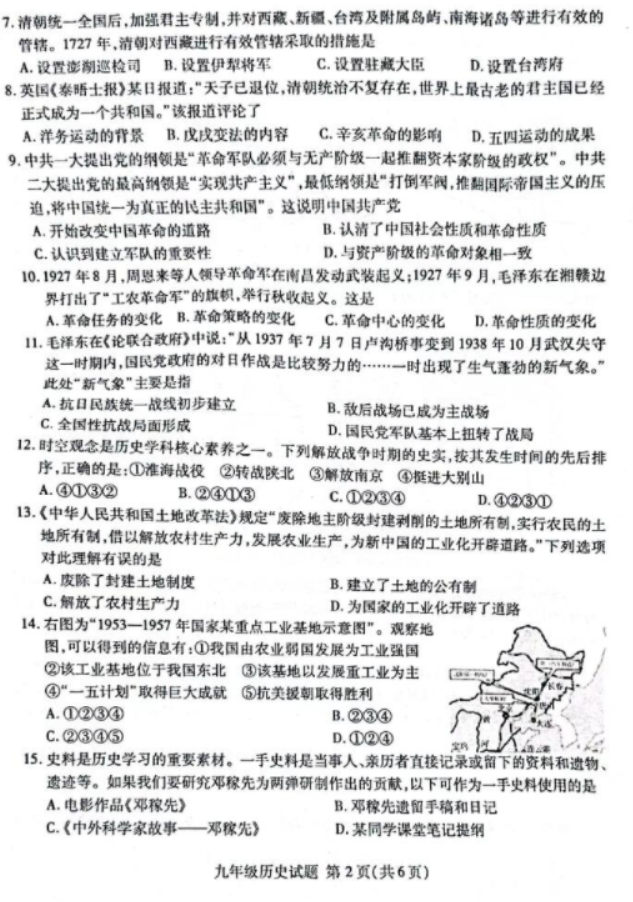 7.清朝统一全国后,加强君主专制,并对西藏、新疆、台湾及附属岛屿、南海诸岛等进行有效的
管辖。1727年,清朝对西藏进行有效管辖采取的措施是
A.设置澎湖巡检司 B.设置伊犁将军 C.设置驻藏大臣 D.设置台湾府
8.英国《泰晤士报》某日报道:“天子已退位,清朝统治不复存在,世界上最古老的君主国已经
正式成为一个共和国。”该报道评论了
A.洋务运动的背景 B.戊戌变法的内容 C.辛亥革命的影响 D.五四运动的成果
9.中共一大提出党的纲领是“革命军队必须与无产阶级一起推翻资本家阶级的政权”。中共
二大提出党的最高纲领是“实现共产主义”,最低纲领是“打倒军阀,推翻国际帝国主义的压
迫,将中国统一为真正的民主共和国”。这说明中国共产党
A.开始改变中国革命的道路 B.认清了中国社会性质和革命性质
C.认识到建立军队的重要性 D.与资产阶级的革命对象相一致
10.1927年8月,周恩来等人领导革命军在南昌发动武装起义;1927年9月,毛泽东在湘赣边
界打出了“工农革命军”的旗帜,举行秋收起义。这是
A.革命任务的变化 B.革命策略的变化 C.革命中心的变化 D.革命性质的变化
11.毛泽东在《论联合政府》中说:“从1937年7月7日卢沟桥事变到1938年10月武汉失守
这一时期内,国民党政府的对日作战是比较努力的……一时出现了生气蓬勃的新气象。”
此处“新气象”主要是指
A.抗日民族统一战线初步建立 B.敌后战场已成为主战场
C.全国性抗战局面形成 D.国民党军队基本上扭转了战局
12.时空观念是历史学科核心素养之一。下列解放战争时期的史实,按其发生时间的先后排
序,正确的是:①淮海战役 ②转战陕北 ③解放南京 ④挺进大别山
A.④①③② B.②④①③ C.①②③④ D.④②③①
13.《中华人民共和国土地改革法》规定“废除地主阶级封建剥削的土地所有制,实行农民的土
地所有制,借以解放农村生产力,发展农业生产,为新中国的工业化开辟道路。”下列选项
对此理解有误的是
A.废除了封建土地制度 B.建立了土地的公有制
C.解放了农村生产力 D.为国家的工业化开辟了道路
14.右图为“1953—1957年国家某重点工业基地示意图”。观察地
图,可以得到的信息有:①我国由农业弱国发展为工业强国
②该工业基地位于我国东北 ③该基地以发展重工业为主
④“一五计划”取得巨大成就 ⑤抗美援朝取得胜利
A.①②③④ B.②③④
C.②③④⑤ D.①②④
长春
沈阳
北京
大连
黄
河
宝鸡
连云港
15.史料是历史学习的重要素材。一手史料是当事人、亲历者直接记录或留下的资料和遗物、
遗迹等。如果我们要研究邓稼先为两弹研制作出的贡献,以下可作为一手史料使用的是
A.电影作品《邓稼先》 B.邓稼先遗留手稿和日记
C.《中外科学家故事——邓稼先》 D.某同学课堂笔记提纲
九年级历史试题 第2页(共6页)